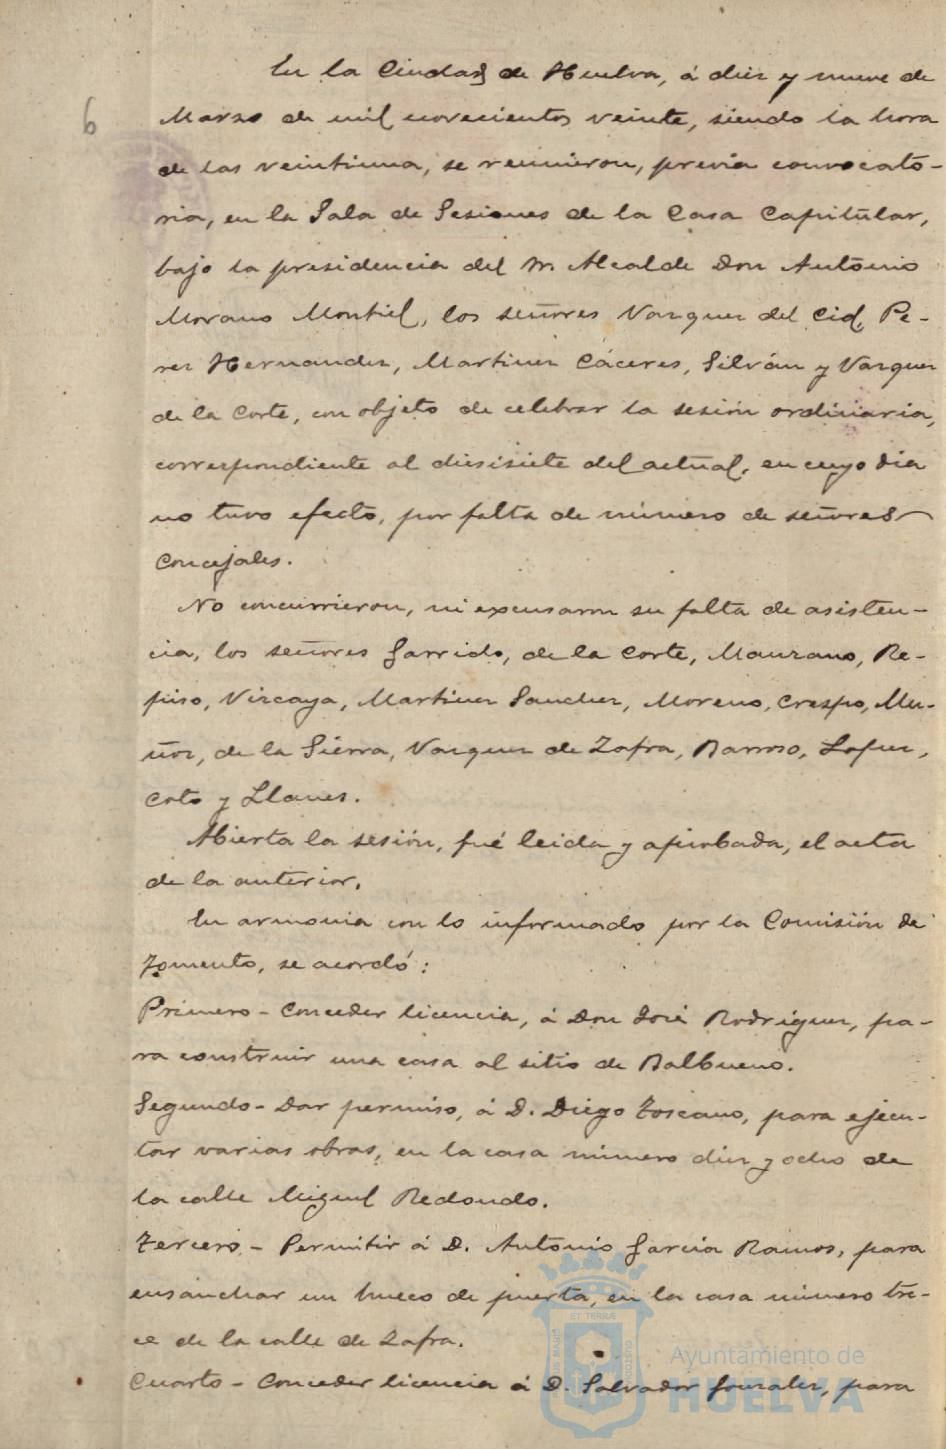 En la Ciudad de Huelva, á diez y nueve de
Marzo de mil novecientos veinte, siendo la hora
de las veintiuna, se reunieron, previa convocato-
ria, en la Sala de Sesiones de la Casa Capitular,
bajo la presidencia del Sr. Alcalde Don Antonio
Morano Montiel, los señores Vazquez del Cid, Pe-
rez Hernandez, Martinez Cáceres, Silván y Vazquez
de la Corte, con objeto de celebrar la sesión ordinaria,
correspondiente al diesisiete del actual, en cuyo dia
no tuvo efecto, por falta de número de señores
Concejales.
No concurrieron, ni excusaron su falta de asisten-
cia, los señores Garrido, de la Corte, Manzano, Re-
piso, Vizcaya, Martinez Sanchez, Moreno, Crespo, Mu-
ñoz, de la Sierra, Vazquez de Zafra, Barroso, Lopez,
Coto y Llanes.
Abierta la sesión, fué leida y aprobada, el acta
de la anterior.
En armonia con lo informado por la Comisión de
Fomento, se acordó:
Primero - Conceder licencia, á Don José Rodriguez, pa-
ra construir una casa al sitio de Balbueno.
Segundo - Dar permiso, á D. Diego Toscano, para ejecu-
tar varias obras, en la casa número diez y ocho de
la calle Miguel Redondo.
Tercero - Permitir á D. Antonio Garcia Ramos, para
ensanchar un hueco de puerta, en la casa número tre-
ce de la calle de Zafra.
Cuarto - Conceder licencia á D. Salvador Gonzalez, para
6
Ayuntamiento de
HUELVA